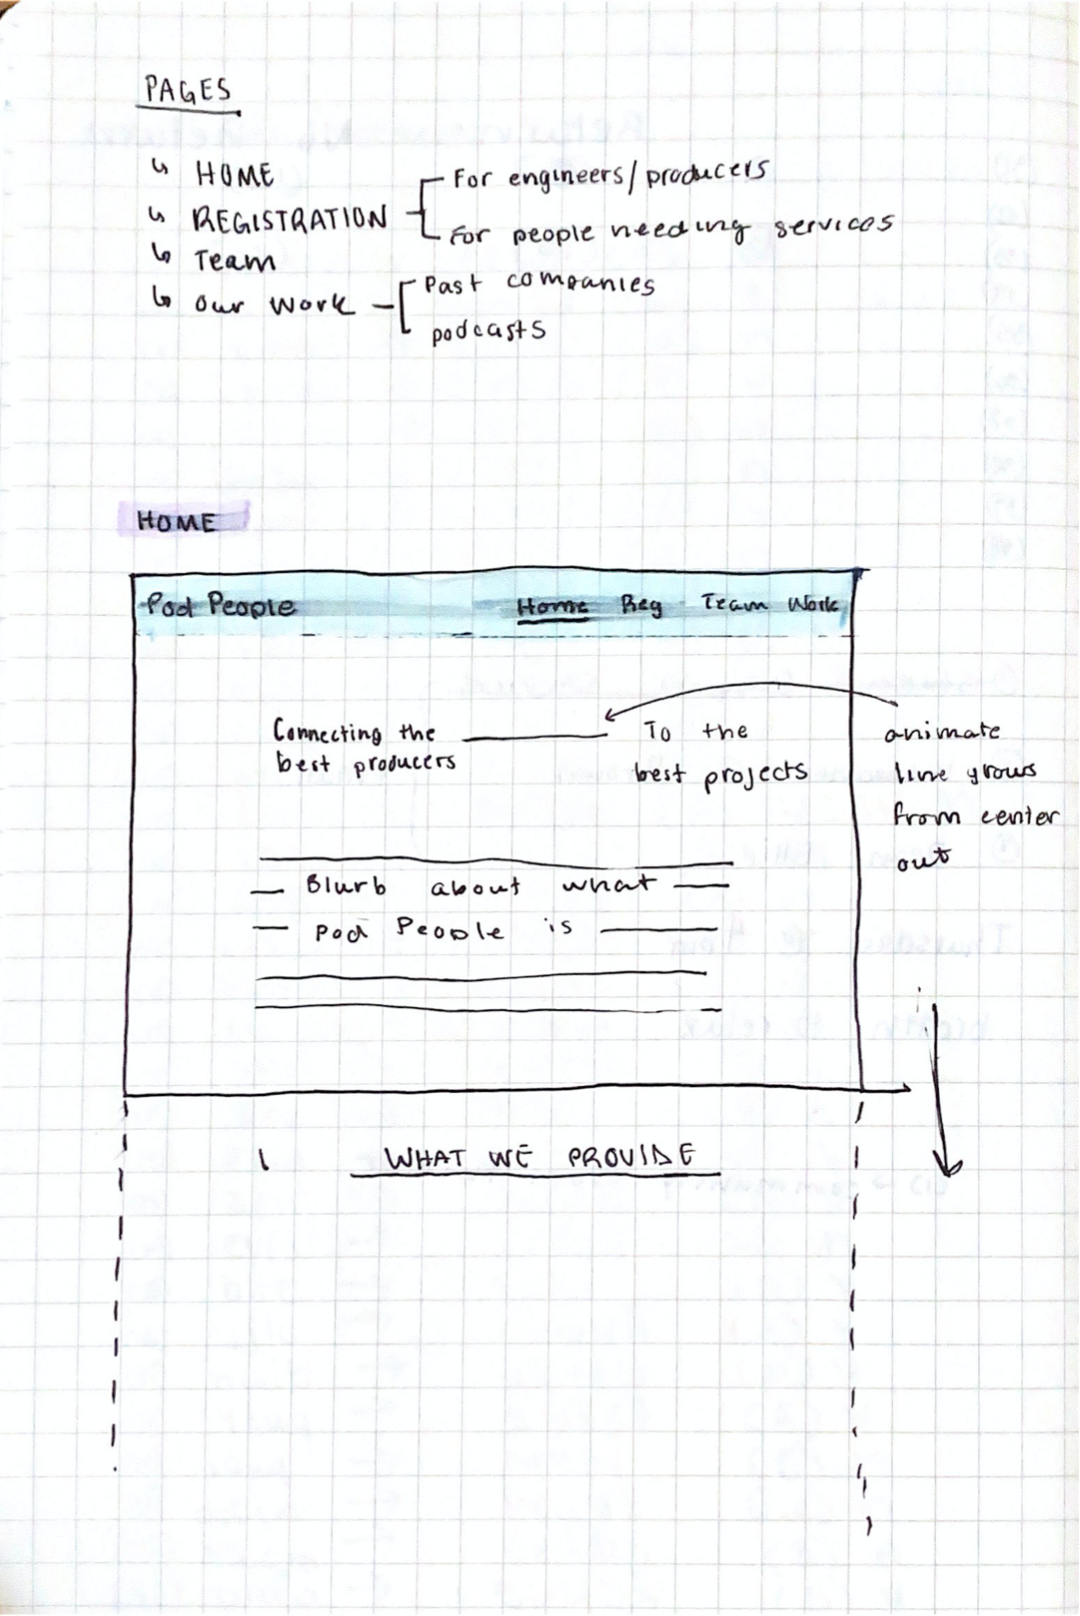 PAGES
↳ HOME
↳ REGISTRATION
For engineers/producers
For people needing services
↳ Team
↳ our work
Past companies
podcasts
HOME
Pod People Home Reg Team Work
Connecting the
best producers
To the
best projects
animate
line grows
from center
out
Blurb about what
Pod People is
WHAT WE PROVIDE